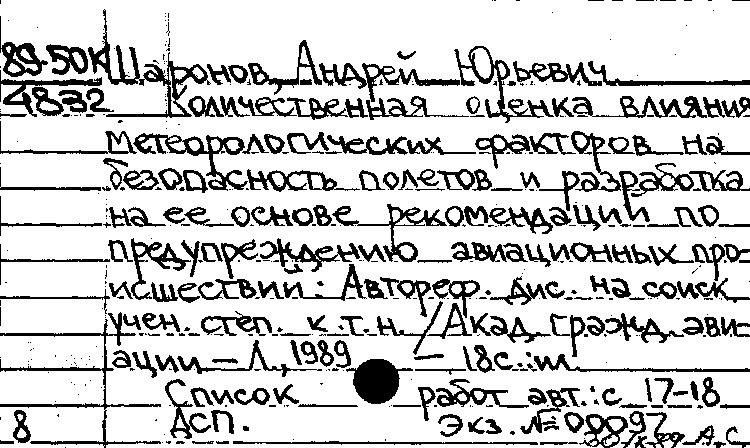 89-50К Шаронов, Андрей Юрьевич
4832 Количественная оценка влияния
метеорологических факторов на
безопасность полетов и разработка
на ее основе рекомендаций по
предупреждению авиационных про-
исшествий: Автореф. дис. на соиск
учен. степ. к.т.н. / Акад. гражд. ави-
ации – Л., 1989 – 18с.:ил.
Список работ авт.: с 17-18
ДСП. Экз. № 00097
8 А.С